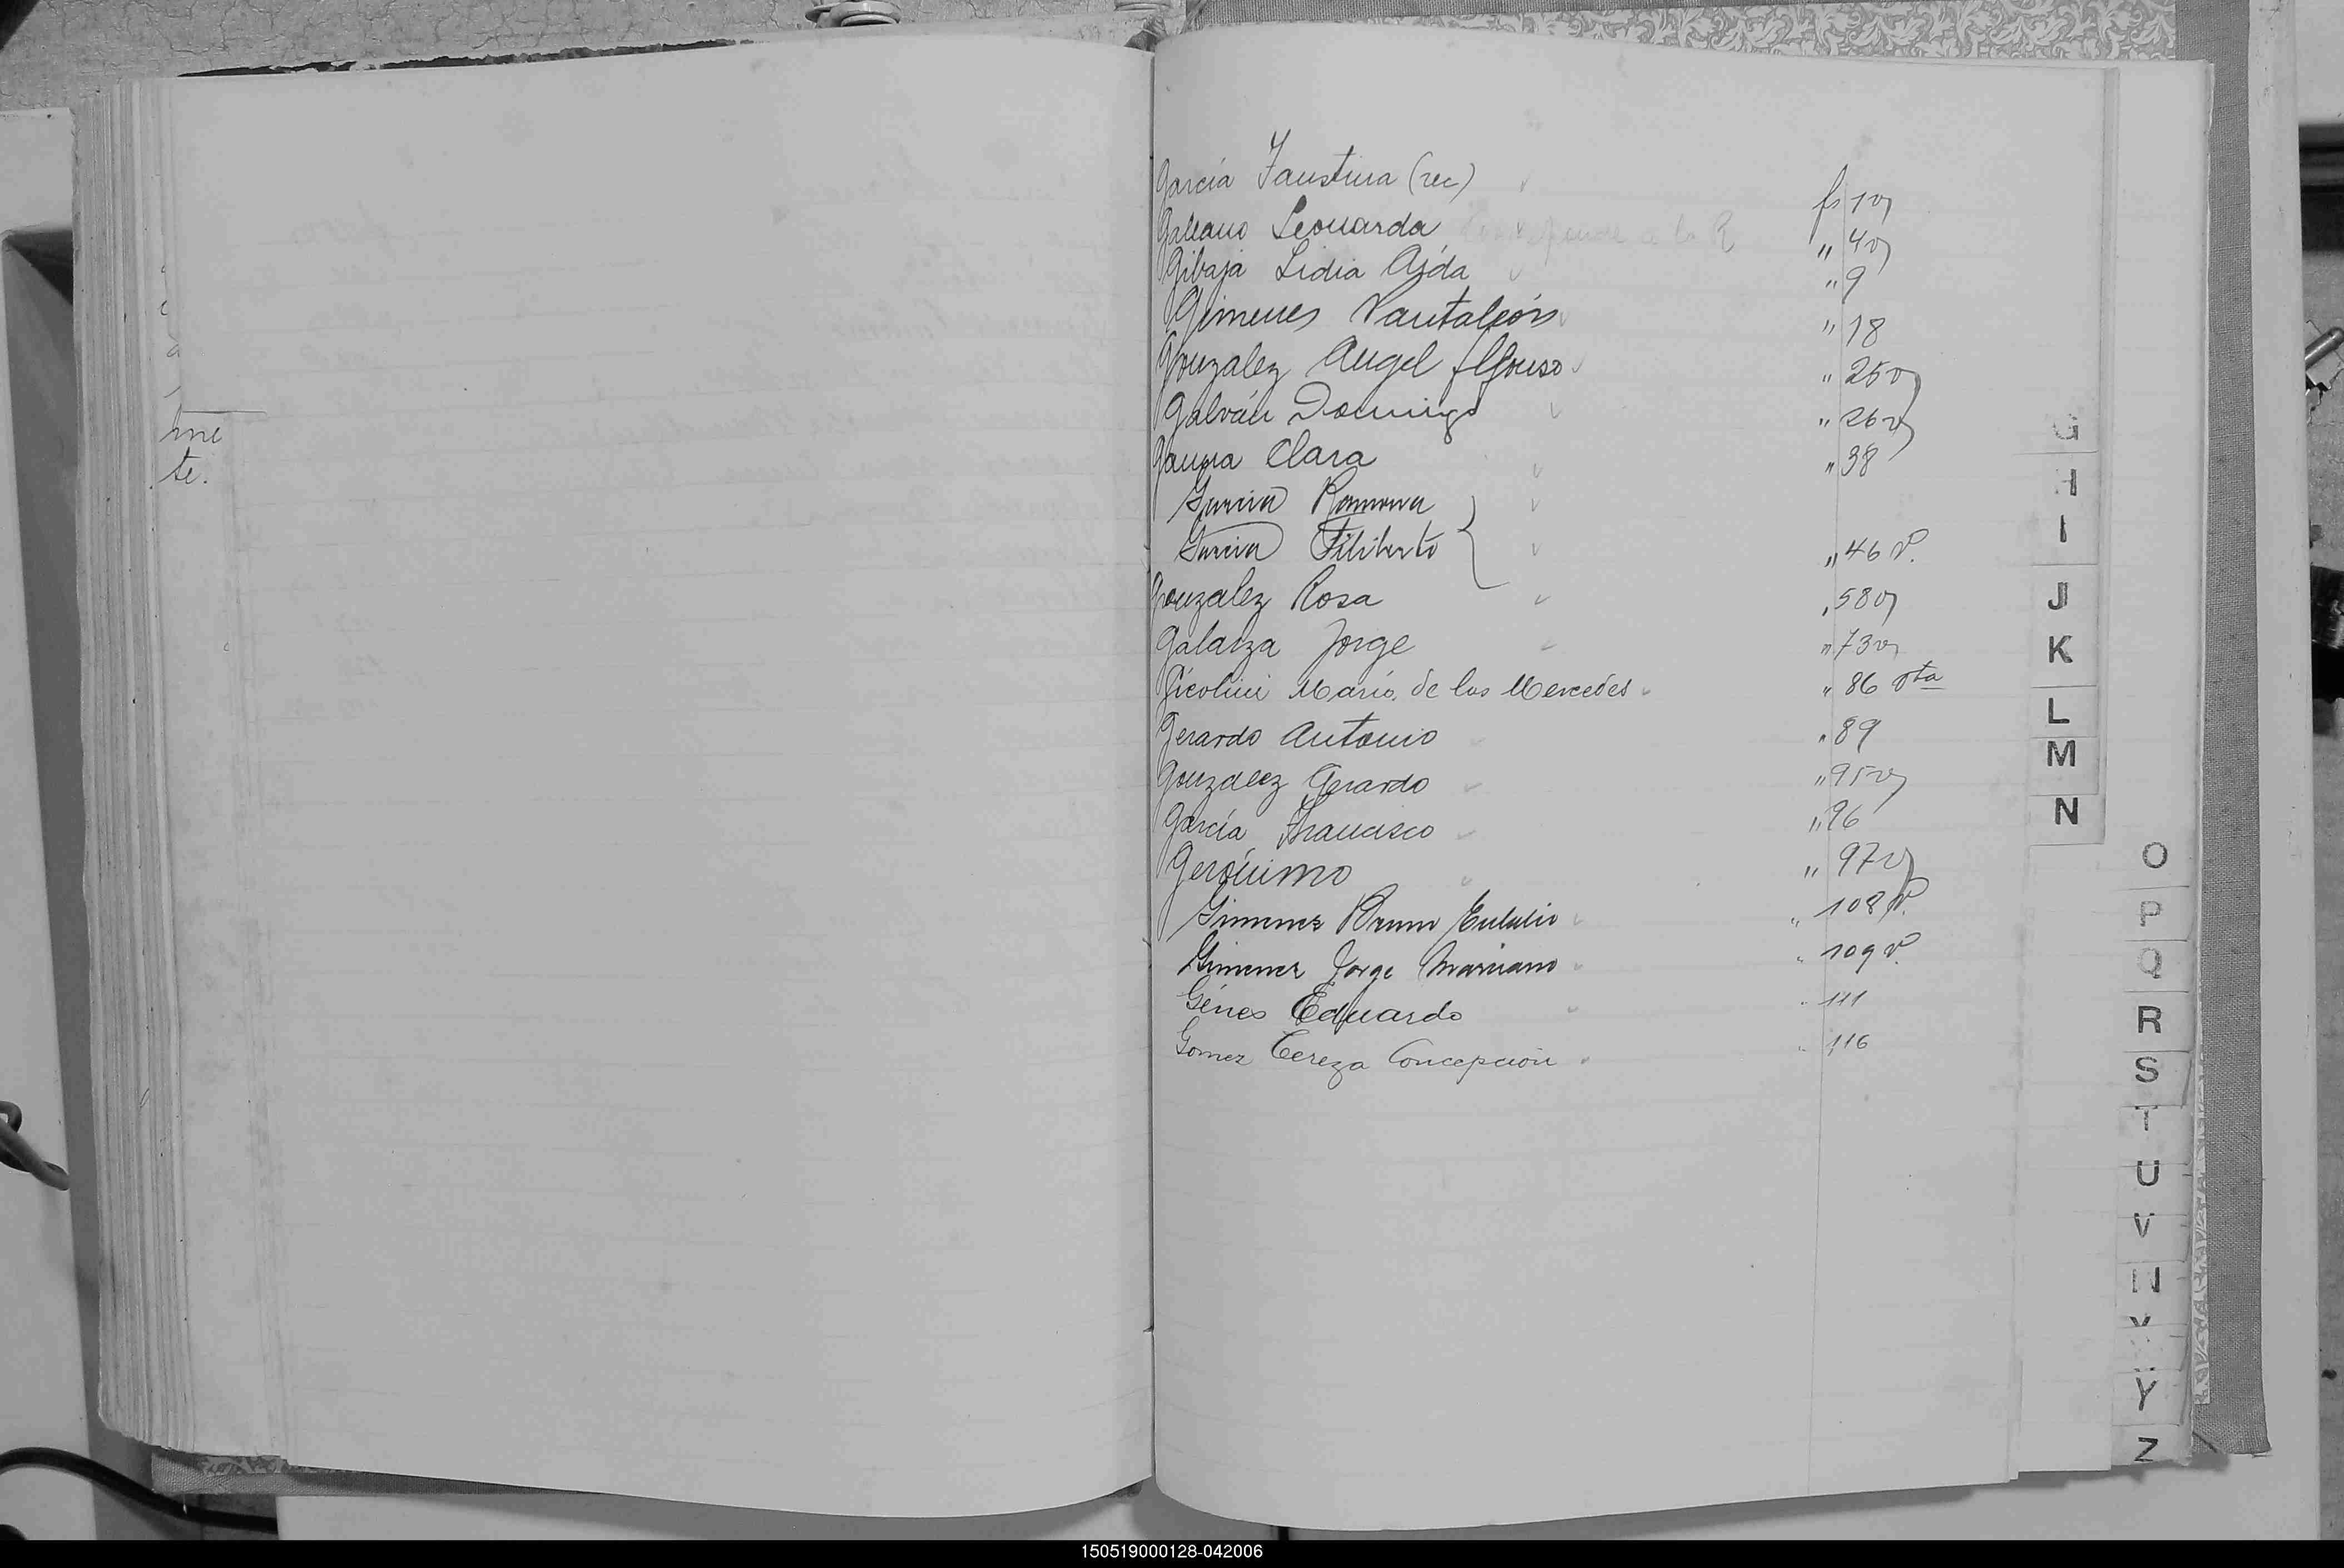 García Faustina (rec) fs 1v
Galeano Leonarda " 4v
Gibaja Lidia Ajda " 9
Gimenes Pantaleón " 18
Gonzalez Angel Alfonso " 25v
Galván Domingo " 26v
Gauna Clara " 38
García Ramona
García Filiberto " 46 v.
Gonzalez Rosa " 58v
Galarza Jorge " 73v
Gicolini María de las Mercedes " 86 vta
Gerardo Antonio " 89
Gonzalez Gerardo " 95v
García Francisco " 96
Gerónimo " 97v
Gimenez Bruno Eulalio " 108 v.
Gimenez Jorge Mariano " 109 v.
Génes Eduardo " 111
Gomez Tereza Concepción " 116
te.
G
H
I
J
K
L
M
N
O
P
Q
R
S
T
U
V
Y
Z
150519000128-042006